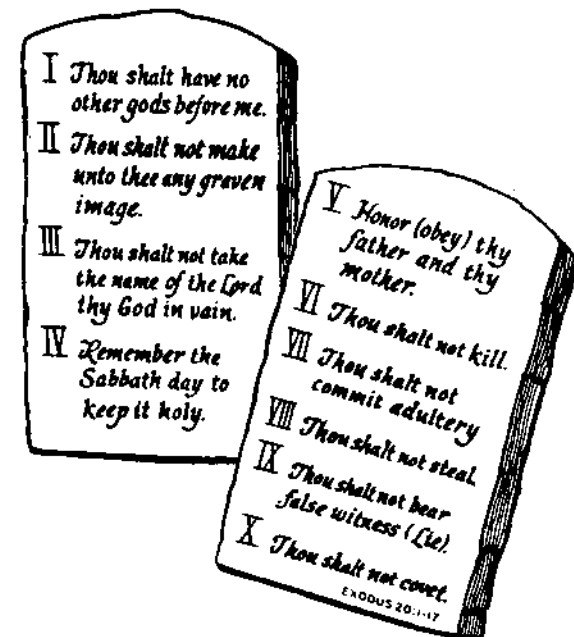 I Thou shalt have no
other gods before me.
II Thou shalt not make
unto thee any graven
image.
III Thou shalt not take
the name of the Lord
thy God in vain.
IV Remember the
Sabbath day to
keep it holy.
V Honor (obey) thy
father and thy
mother.
VI Thou shalt not kill.
VII Thou shalt not
commit adultery
VIII Thou shalt not steal.
IX Thou shalt not bear
false witness (Lie).
X Thou shalt not covet.
EXODUS 20:1-17